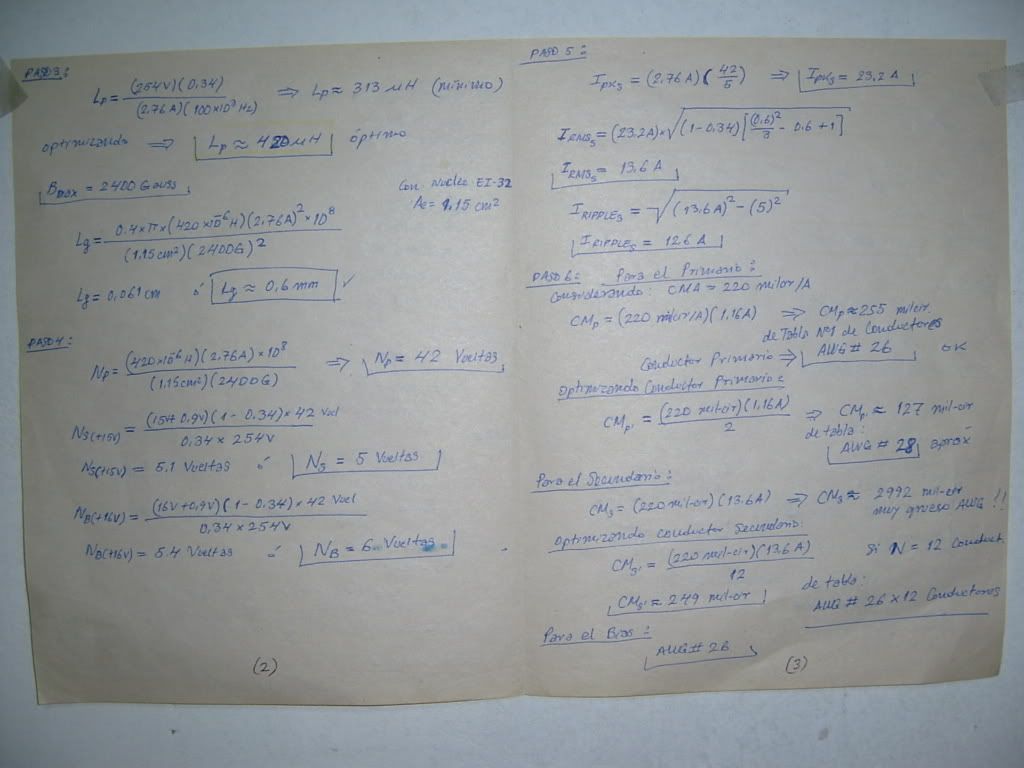 PASO 3:
Lp = (254V)(0,34) / (2,76A)(100x10³Hz) ⇒ Lp ≈ 313 μH (mínimo)
optimizando ⇒ Lp ≈ 420 μH óptimo
Bmax = 2400 Gauss
Con Nucleo EI-32
Ae = 1.15 cm²
Lg = 0.4 x π x (420 x10⁻⁶ H)(2,76A)² x 10⁸ / (1.15cm²)(2400G)²
Lg = 0,061 cm ó Lg ≈ 0,6 mm ✓
PASO 4:
Np = (420x10⁻⁶ H)(2,76A) x 10⁸ / (1.15cm²)(2400G) ⇒ Np = 42 Vueltas
NS(+15V) = (15+0,9V)(1-0,34) x 42 Vuel / 0,34 x 254V
NS(+15V) = 5.1 Vueltas ó NS = 5 Vueltas
NB(+16V) = (16V+0,9V)(1-0.34) x 42 Vuel / 0,34 x 254V
NB(+16V) = 5.4 Vueltas ó NB = 6 Vueltas
(2)
PASO 5:
IPKS = (2,76A)(42/5) ⇒ IPKS = 23,2 A
IRMSS = (23.2A) x √(1-0,34)[(0,6)²/3 - 0.6 + 1]
IRMSS = 13,6 A
IRIPPLES = √(13.6A)² - (5)²
IRIPPLES = 12.6 A
PASO 6: Para el Primario:
Considerando: CMA = 220 milcir/A
CMp = (220 milcir/A)(1,16A) ⇒ CMp ≈ 255 milcir
de Tabla Nº1 de Conductores
Conductor Primario ⇒ AWG # 26 OK
Optimizando Conductor Primario:
CMp' = (220 mil-cir)(1,16A) / 2 ⇒ CMp' ≈ 127 mil-cir
de tabla:
AWG # 28 aprox
Para el Secundario:
CMS = (220 mil-cir)(13.6A) ⇒ CMS ≈ 2992 mil-cir
muy grueso AWG !!
Optimizando conductor Secundario:
CMS' = (220 mil-cir)(13,6A) / 12 Si N = 12 Conduct.
CMS' ≈ 249 mil-cir
de tabla:
AWG # 26 x 12 Conductores
Para el Bias:
AWG # 26
(3)